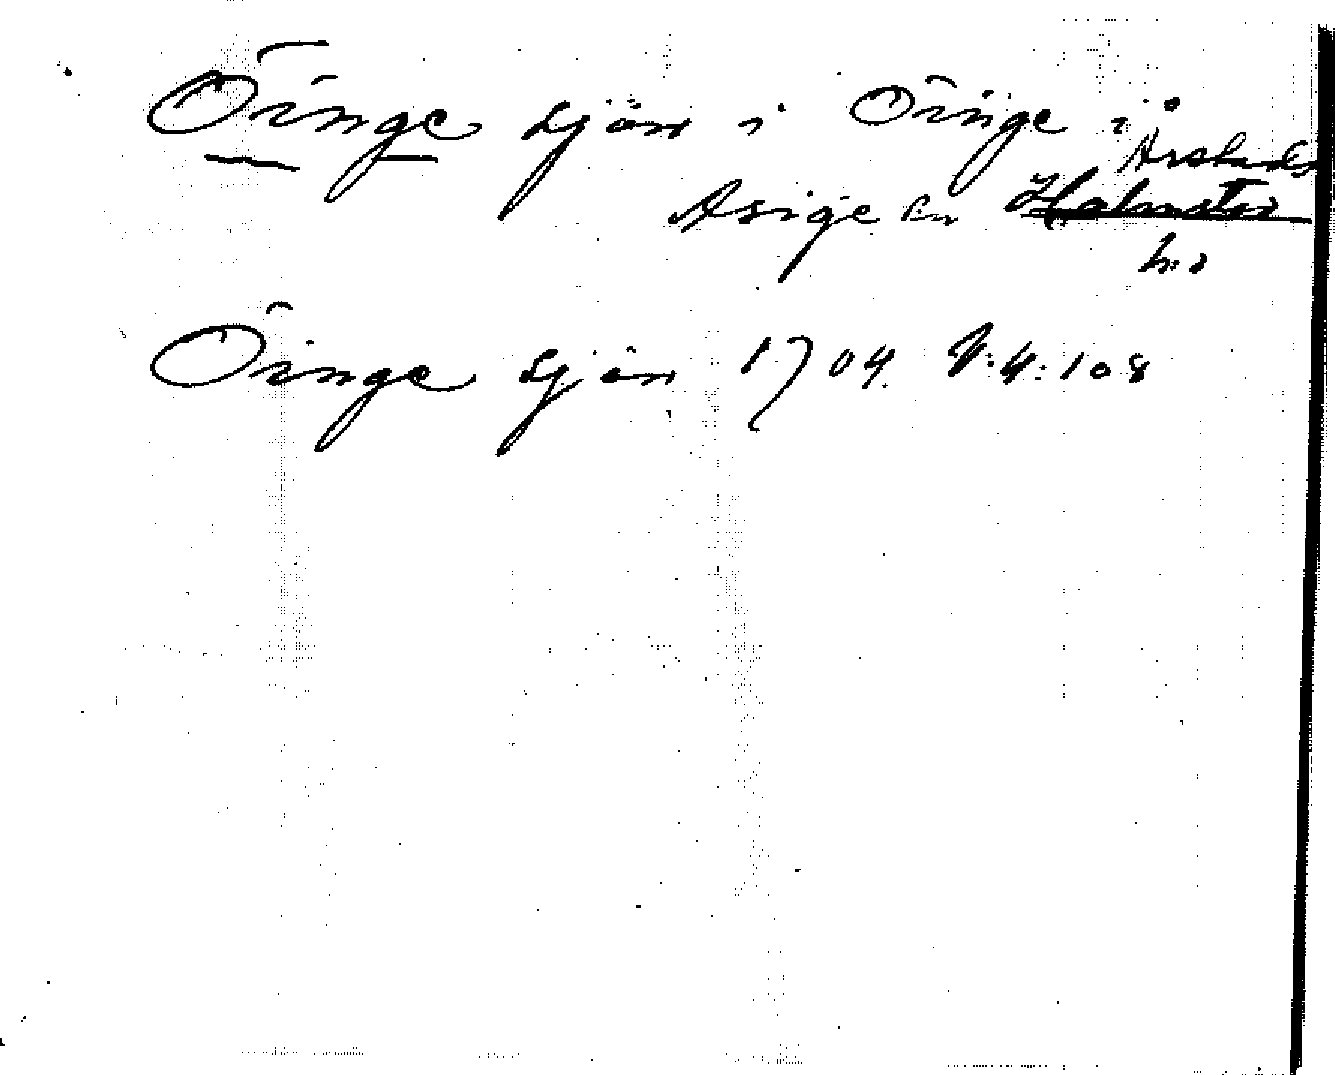 Öinge sjön i Öinge i
Årstads
Asige sn Halmstad
hd
Öinge sjön 1704 V:4:108